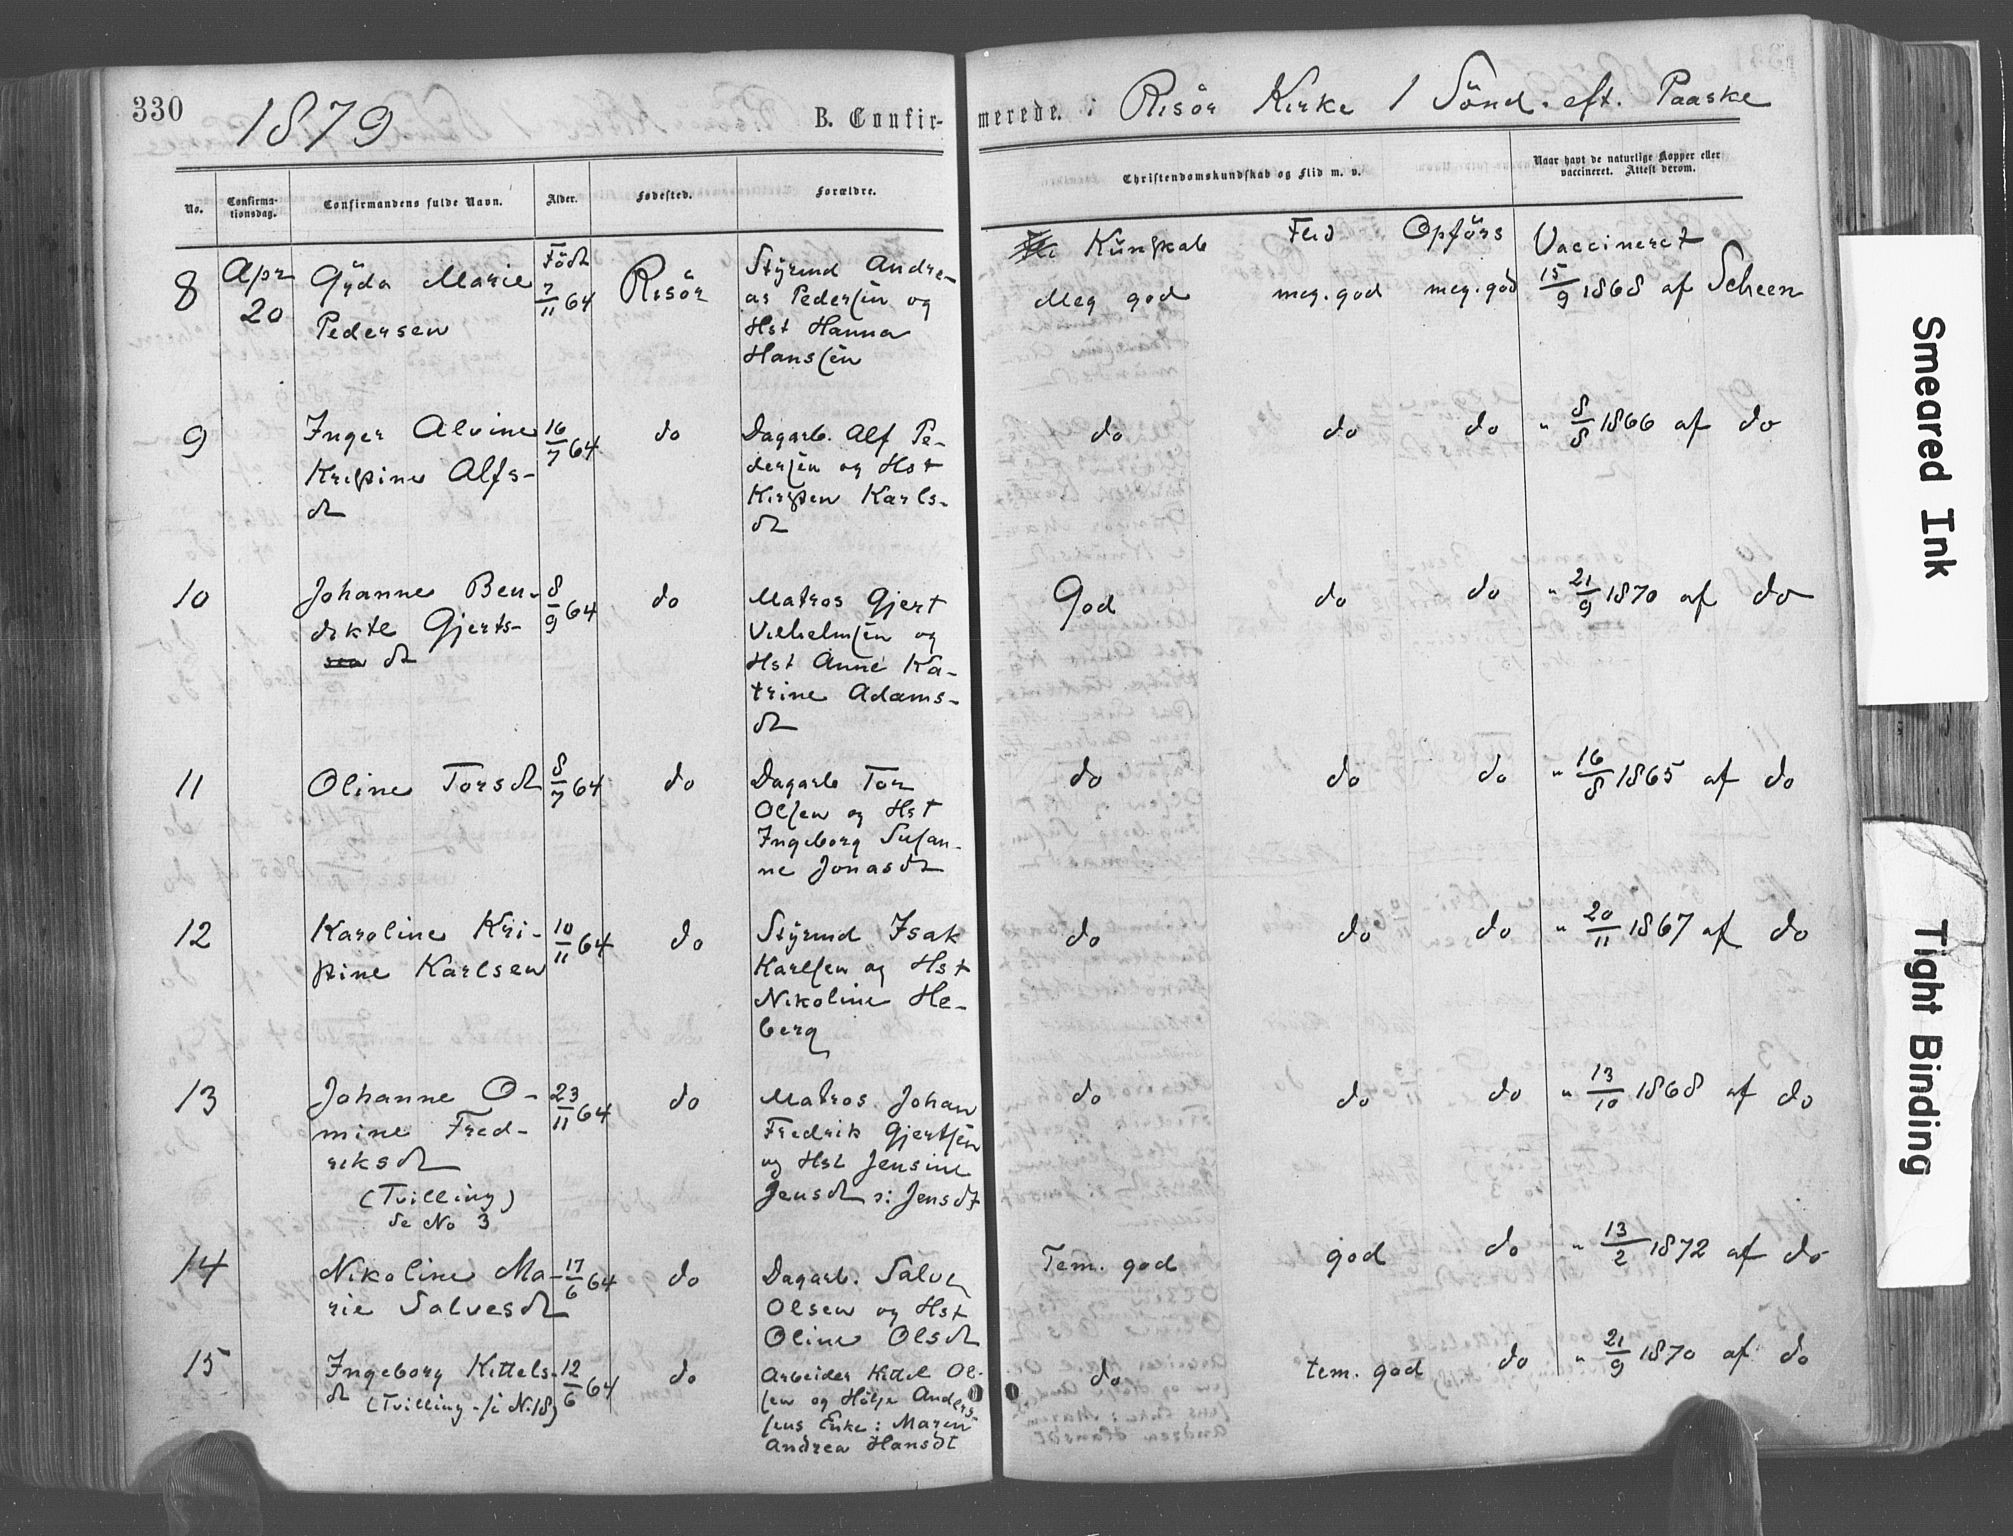 330 1879 B. Confirmerede. i Risör Kirke 1 Sönd. eft. Paaske
No. Confirmationsdag. Confirmandens fulde Navn. Alder. Fødested. Forældre. Christendomskundskab og Flid m. v. Naar havt de naturlige Kopper eller vaccineret. Attest derom.
Födt Kundskab Flid Opförs Vaccineret
8 Apr 20 Gyda Marie 7/11 64 Risör Styrmd Andre- Meg god meg. god meg. god 15/9 1868 af Scheen
Pedersen as Pedersen og
Hst Hanna
Hansen
9 Inger Alvine 16/7 64 do Dagarb. Alf Pe- do do do " 8/8 1866 af do
Kristine Alfs- dersen og Hst
dt Kirsten Karls-
dt
10 Johanne Ben- 8/9 64 do Matros Gjert God do do " 21/9 1870 af do
dikte Gjerts- Vilhelmsen og
sen dt Hst Anne Ka-
trine Adams-
dt
11 Oline Torsdt 8/7 64 do Dagarb Tor do do do " 16/8 1865 af do
Olsen og Hst
Ingeborg Susan-
ne Jonasdt
12 Karoline Kri- 10/11 64 do Styrmd Isak do do do " 20/11 1867 af do
stine Karlsen Karlsen og Hst
Nikoline He-
berg
13 Johanne O- 23/11 64 do Matros Johan do do do " 13/10 1868 af do
mine Fred- Fredrik Gjertsen
riksdt og Hst Jensine
(Tvilling) Jensdt : Jensdt
Se No 3
14 Nikoline Ma- 17/6 64 do Dagarb. Salve Tem. god god do " 13/2 1872 af do
rie Salvesdt Olsen og Hst
Oline Olsdt
15 Ingeborg Kittels- 12/6 64 do Arbeider Kittil Ol- do tem. god do " 21/9 1870 af do
dt (Tvilling - N. 18) sen og Anders-
sens Enke : Maren
Andrea Hansdt
Smeared Ink
Tight Binding